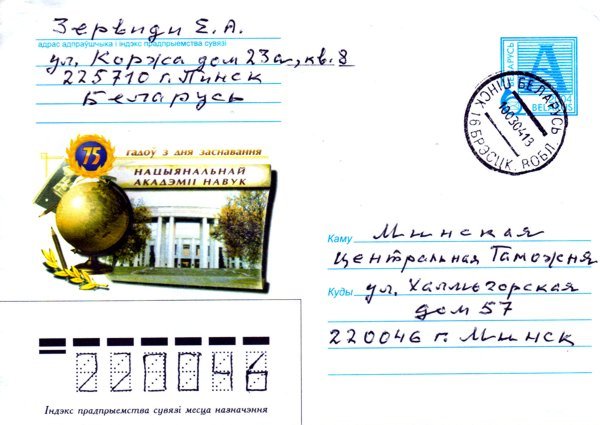 Зервиди Е.А.
адрас адпраўшчыка і індэкс прадпрыемства сувязі
ул. Коржа дом 23а, кв. 8
225710 г. Пинск
Беларусь
БЕЛАРУСЬ
A
BELARUS
ПІНСК-16 БРЭСЦК. ВОБЛ. БЕЛАРУСЬ
75
гадоў з дня заснавання
НАЦЫЯНАЛЬНАЙ
АКАДЭМІІ НАВУК
Каму Минская
центральная Таможня
Куды ул. Халльгорская
дом 57
220046 г. Минск
220046
Індэкс прадпрыемства сувязі месца назначэння